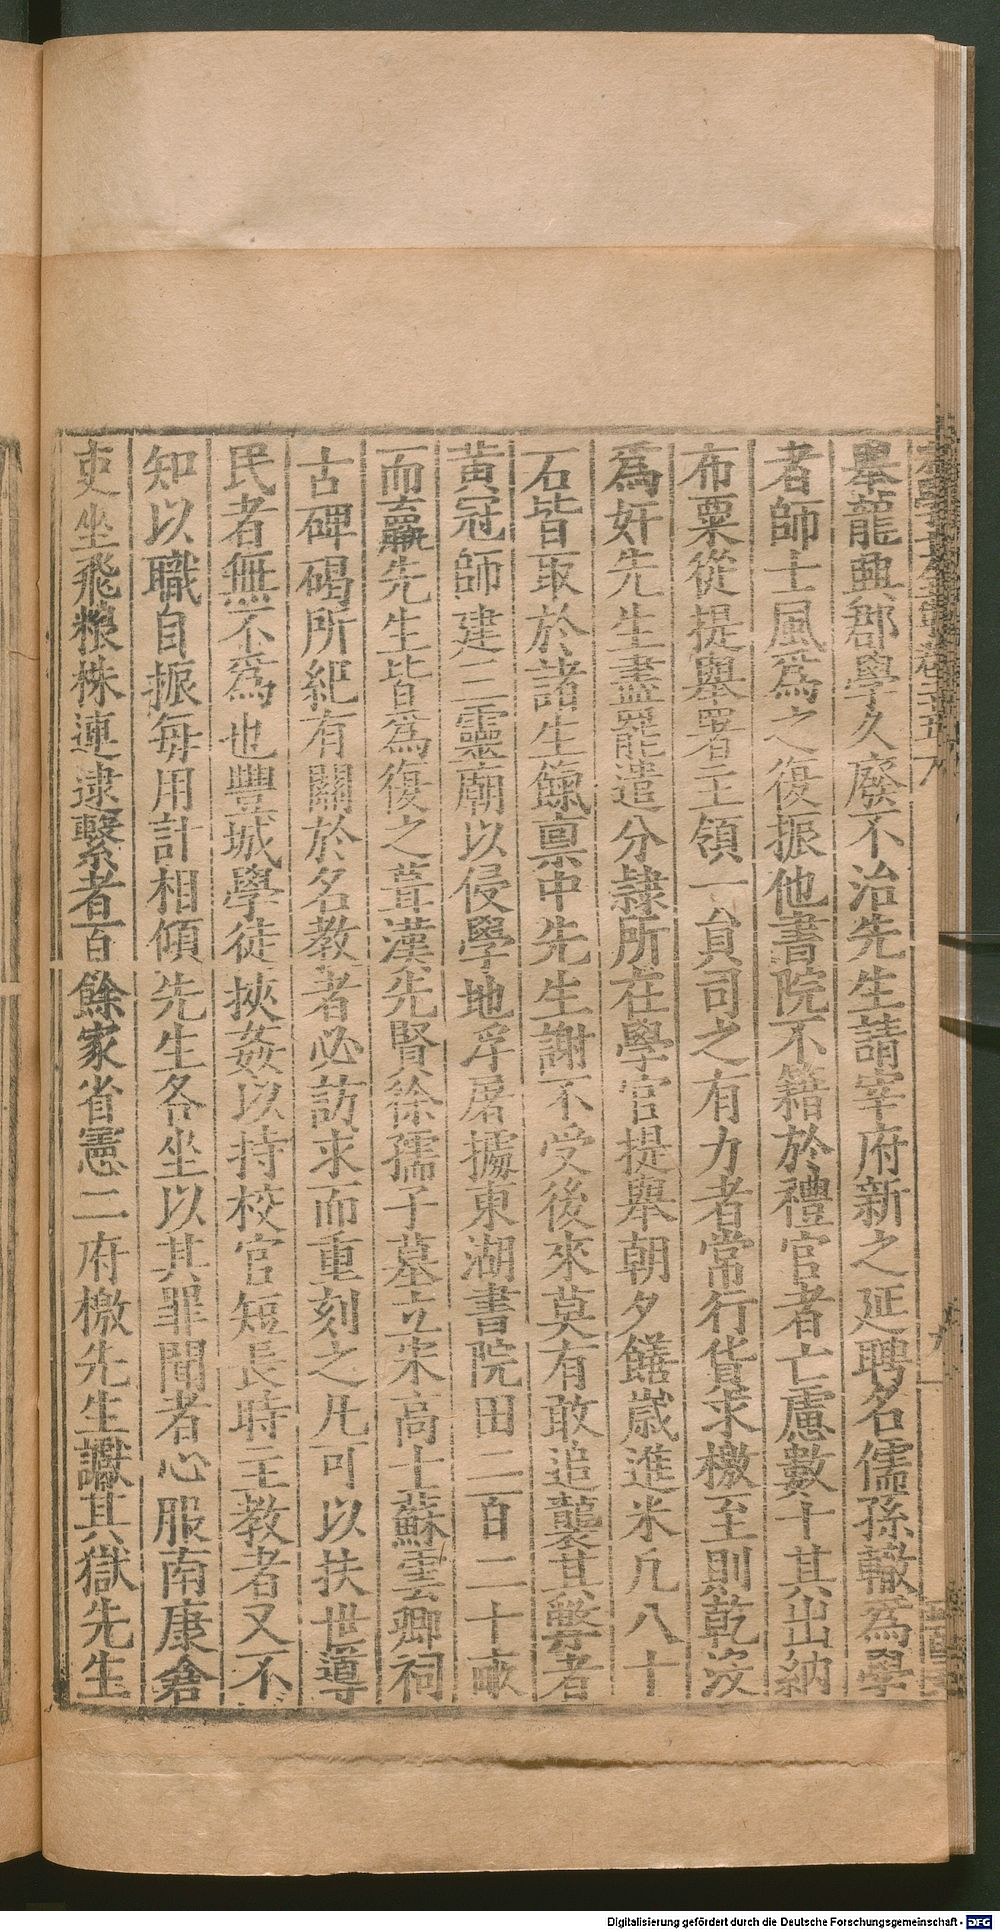 舉龍興郡學久廢不治先生請宰府新之延聘名儒孫轍爲學
者師士風爲之復振他書院不籍於禮官者亡慮數十其出納
布粟從提舉署主領一員司之有力者常行貨求檄至則乾沒
爲奸先生盡罷遣分隷所在學官提舉朝夕饍歲進米凢八十
石皆取於諸生餼稟中先生謝不受後來莫有敢追襲其弊者
黃冠師建三靈廟以侵學地浮屠據東湖書院田二百二十畝
而羸先生皆爲復之葺漢先賢徐孺子墓立宋高士蘇雲卿祠
古碑碣所紀有關於名教者必訪求而重刻之凢可以扶世導
民者無不爲也豐城學徒挾姦以持校官短長時主教者又不
知以職自振每用計相傾先生各坐以其罪聞者心服南康倉
吏坐飛糧株連逮繫者百餘家省憲二府檄先生讞其獄先生
Digitalisierung gefördert durch die Deutsche Forschungsgemeinschaft - DFG